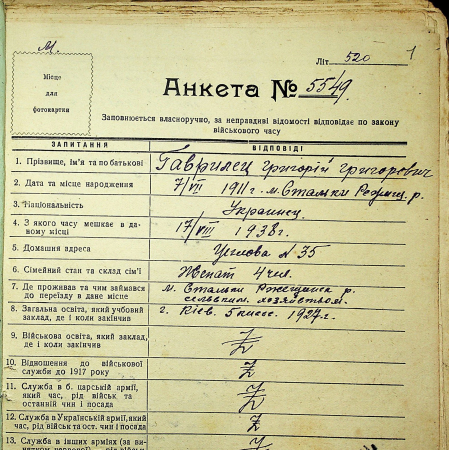 М.
Літ. 520
1
Місце
для
фотокартки
Анкета № 5549.
Заповнюється власноручно, за неправдиві відомості відповідає по закону
військового часу
ЗАПИТАННЯ ВІДПОВІДІ
1. Прізвище, ім'я та по батькові Гаврилец Григорій Григорович
2. Дата та місце народження 7/VII 1911 г. м. р.
3. Національність Украинец.
4. З якого часу мешкає в да- 17/VIII 1938 г.
ному місці
5. Домашня адреса Углова N 35
6. Сімейний стан та склад сім'ї Женат 4 чел.
7. Де проживав та чим займався м. р.
до переїзду в дане місце хозяйством.
8. Загальна освіта, який учбовий г. Киев. 5 1927 г.
заклад, де і коли закінчив
9. Військова освіта, який заклад,
де і коли закінчив
10. Відношення до військової
служби до 1917 року
11. Служба в б. царській армії,
який час, рід військ та
останній чин і посада
12. Служба в Українській армії, який
час, рід військ та ост. чин і посада
13. Служба в інших арміях (за ви-